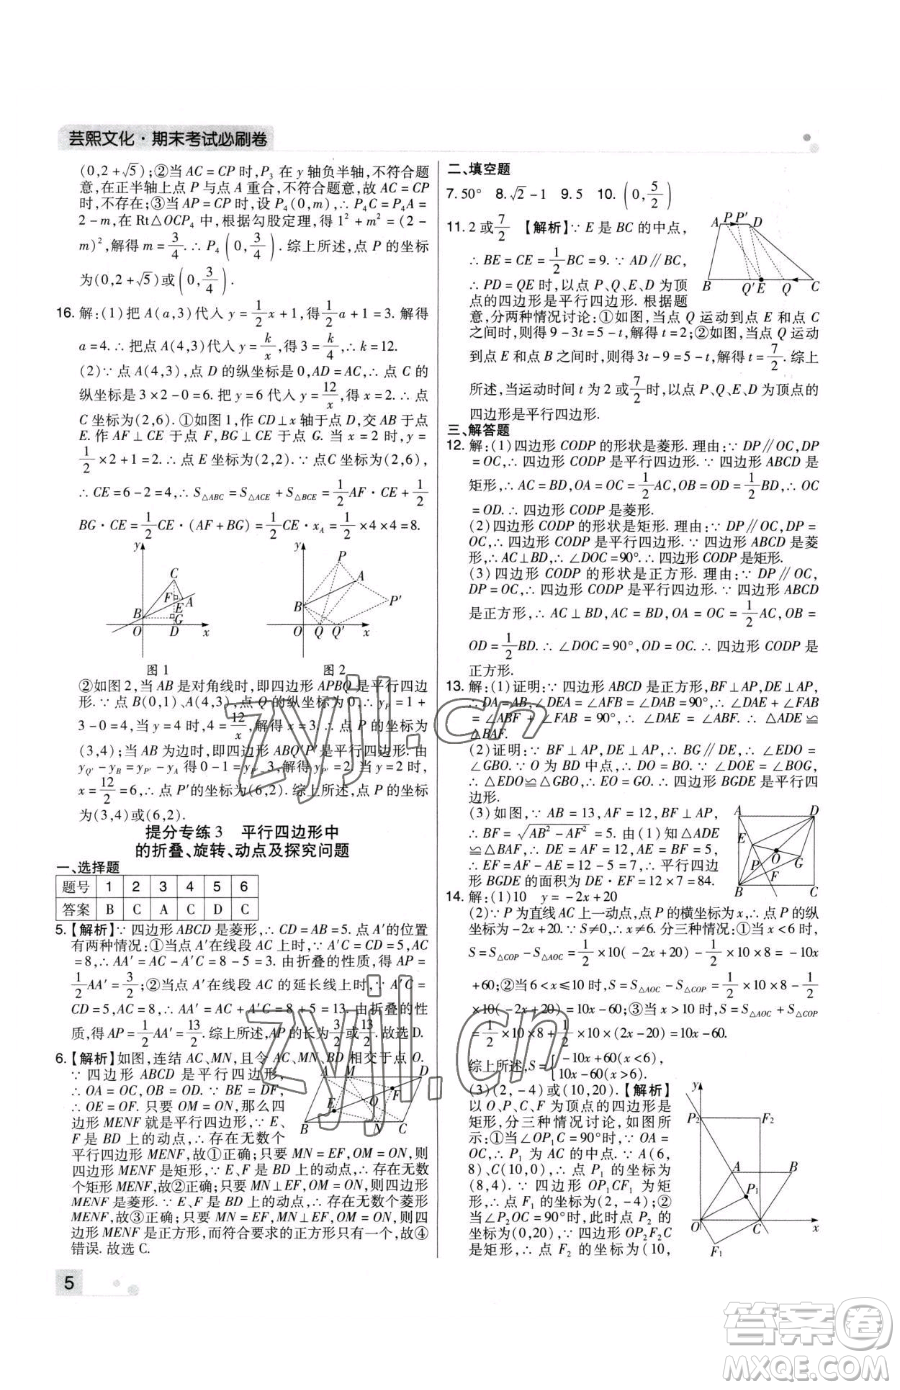 芸熙文化·期末考试必刷卷
(0,2+√5);②当 AC=CP 时,P₃ 在 y 轴负半轴,不符合题
意,在正半轴上点 P 与点 A 重合,不符合题意,∴AC=CP
时,不存在;③当 AP=CP 时,设 P₄(0,m),∴P₄A=P₄C=
2-m,在 Rt△OCP₄ 中,根据勾股定理,得 1²+m²=(2-
m)²,解得 m=3/4.∴P₄(0,3/4).综上所述,点 P 的坐标
为(0,2+√5)或(0,3/4).
16.解:(1)把 A(a,3)代入 y=1/2x+1,得1/2a+1=3.解得
a=4.∴把点 A(4,3)代入 y=k/x,得3=k/4.∴k=12.
(2)∵点 A(4,3),点 D 的纵坐标是 0,∴点 C 的
纵坐标是 3×2-0=6.把 y=6 代入 y=12/x,得 x=2.∴点
C 坐标为(2,6).①如图 1,作 CD⊥x 轴于点 D,交 AB 于点
E.作 AF⊥CE 于点 F,作 BG⊥CE 于点 G.当 x=2 时,y=
1/2×2+1=2.∴点 E 坐标为(2,2).∵点 C 坐标为(2,6),
∴CE=6-2=4,∴S△ABC=S△ACE+S△BCE=1/2AF·CE+1/2
BG·CE=1/2CE·(AF+BG)=1/2CE·xA=1/2×4×4=8.
y C F A E B G O D x
y P A B P′ O Q Q′ x
图 1 图 2
②如图 2,当 AB 是对角线时,即四边形 APBQ 是平行四边
形.∵点 B(0,1)、A(4,3),点 Q 的纵坐标为 0,∴yP=1+
3-0=4.当 y=4 时,4=12/x,解得 x=3.∴点 P 坐标为
(3,4);当 AB 为边时,即四边形 ABQ′P′是平行四边形.由
yQ′-yB=yP′-yA 得 0-1=yP′-3,解得 yP′=2.当 y=2 时,
x=12/2=6,∴点 P′的坐标为(6,2).综上所述,点 P 的坐标
为(3,4)或(6,2).
提分专练 3 平行四边形中
的折叠、旋转、动点及探究问题
一、选择题
题号 1 2 3 4 5 6
答案 B C A C D C
5.【解析】∵四边形 ABCD 是菱形,∴点 A′在 AC 的位置
有两种情况:①当点 A′在线段 AC 上时,∵CD=5,AC
=8,∴AA′=AC-A′C=8-5=3.由折叠的性质,得 AP=
1/2AA′=3/2;②当点 A′在线段 AC 的延长线上时,∵A′C=
CD=5,AC=8,∴AA′=AC+A′C=8+5=13.由折叠的性
质,得 AP=1/2AA′=13/2.综上所述,AP 的长为3/2或13/2.故选 D.
6.【解析】如图,连结 AC、MN,且令 AC、MN、BD 相交于点 O.
∵四边形 ABCD 是平行四边形,
∴OA=OC,OB=OD.∵BE=DF,
∴OE=OF.只要 OM=ON,那么四
边形 MENF 就是平行四边形.∵E、
F 是 BD 上的动点,∴存在无数个
平行四边形 MENF,故①正确;只要 MN=EF,OM=ON,则四
边形 MENF 是矩形,∵E、F 是 BD 上的动点,∴存在无数个
矩形 MENF,故②正确;只要 MN⊥EF,OM=ON,则四边形
MENF 是菱形.∵E、F 是 BD 上的动点,∴存在无数个菱形
MENF,故③正确;只要 MN=EF,MN⊥EF,OM=ON,则四
边形 MENF 是正方形,而符合要求的正方形只有一个,故④
错误.故选 C.
A M D F E O B N C
5
二、填空题
7.50° 8.√2-1 9.5 10.(0,5/2)
11.2 或7/2 【解析】∵E 是 BC 的中点,
∴BE=CE=1/2BC=9.∵AD∥BC,
∴PD=QE 时,以点 P、Q、E、D 为顶
点的四边形是平行四边形.根据题
意,分两种情况讨论:①如图,当点 Q 运动到点 E 和点 C
之间时,则得 9-3t=5-t,解得 t=2;②如图,当点 Q 运动
到点 E 和点 B 之间时,则得 3t-9=5-t,解得 t=7/2.综上
所述,当运动时间 t 为 2 或7/2时,以点 P、Q、E、D 为顶点的
四边形是平行四边形.
A P P′ D B Q′ E Q C
三、解答题
12.解:(1)四边形 CODP 的形状是菱形.理由:∵DP∥OC,DP
=OC,∴四边形 CODP 是平行四边形.∵四边形 ABCD 是
矩形,∴AC=BD,OA=OC=1/2AC,OB=OD=1/2BD,∴OC
=OD.∴四边形 CODP 是菱形.
(2)四边形 CODP 的形状是矩形.理由:∵DP∥OC,DP
=OC,∴四边形 CODP 是平行四边形.∵四边形 ABCD 是
菱形,∴AC⊥BD,∴∠DOC=90°,∴四边形 CODP 是矩形.
(3)四边形 CODP 的形状是正方形.理由:∵DP∥OC,
DP=OC,∴四边形 CODP 是平行四边形.∵四边形 ABCD
是正方形,∴AC⊥BD,AC=BD,OA=OC=1/2AC,OB=
OD=1/2BD,∴∠DOC=90°,OD=OC.∴四边形 CODP 是
正方形.
13.解:(1)证明:∵四边形 ABCD 是矩形,∴∠ABF+∠FAB=
∠DAB=90°.∵∠DEA=∠AFB=90°,∴∠DAE+∠FAB
=∠ABF+∠FAB=90°.∴∠DAE=∠ABF.∴△ADE≌
△BAF.
(2)证明:∵BF⊥AP,DE⊥AP,∴BF∥DE,∴∠EDO=
∠GBO.∵O 为 BD 的中点,∴BO=DO.∵∠EOD=∠GOB,
∴△EDO≌△GBO,∴EO=GO.∴四边形 BGDE 是平行四
边形.
(3)如图,∵BF⊥AP,AB=13,AF=5,∴BF
=√(AB²-AF²)=12.∵△ADE≌△BAF,∴DE=
AF=5,AE=BF=12.∴EF=12-5=7.∴四边形
BGDE 的面积为 DE·EF=12×7=84.
A D E O G P F B C
14.解:(1)10 y=-2x+20
(2)∵P 为直线 AC 上一动点,点 P 的横坐标为 x,∴点 P 的纵
坐标为-2x+20.∵S≠0,∴x≠6.分两种情况讨论:①当 x<6 时,
S=S△COP-S△AOC=1/2×10(-2x+20)-1/2×10×8=-10x
+60;②当 6<x≤10 时,S=S△AOC-S△COP=1/2×10×8-1/2
×10×(-2x+20)=10x-60;③当 x>10 时,S=S△AOC+S△COP
=1/2×10×8+1/2×10×(2x-20)=10x-60.
综上所述,S={-10x+60(x<6), 10x-60(x>6).
(3)(2,-4)或(10,20).【解析】
以 O、C、F 为顶点的四边形是
矩形,需分两种情况讨论:如图所
示:①当∠OP₁C=90°时,∵OA=
OC=10,∴点 P₁ 是 AC 的中点.∵A(6,
8),C(10,0),∴点 P₁ 的坐标为
(8,4).∵四边形 OP₁CF₁ 是矩
形,∴点 F₁ 的坐标为(2,-4);②
当∠P₂OC=90°时,此时点 P₂ 的坐
标为(0,20).∵四边形 OP₂F₂C
是矩形,∴点 F₂ 的坐标为(10,
y P₂ F₂ A B P₁ O C x F₁
zyjl.cn
zyjl.cn
答案圈
MXQE.COM